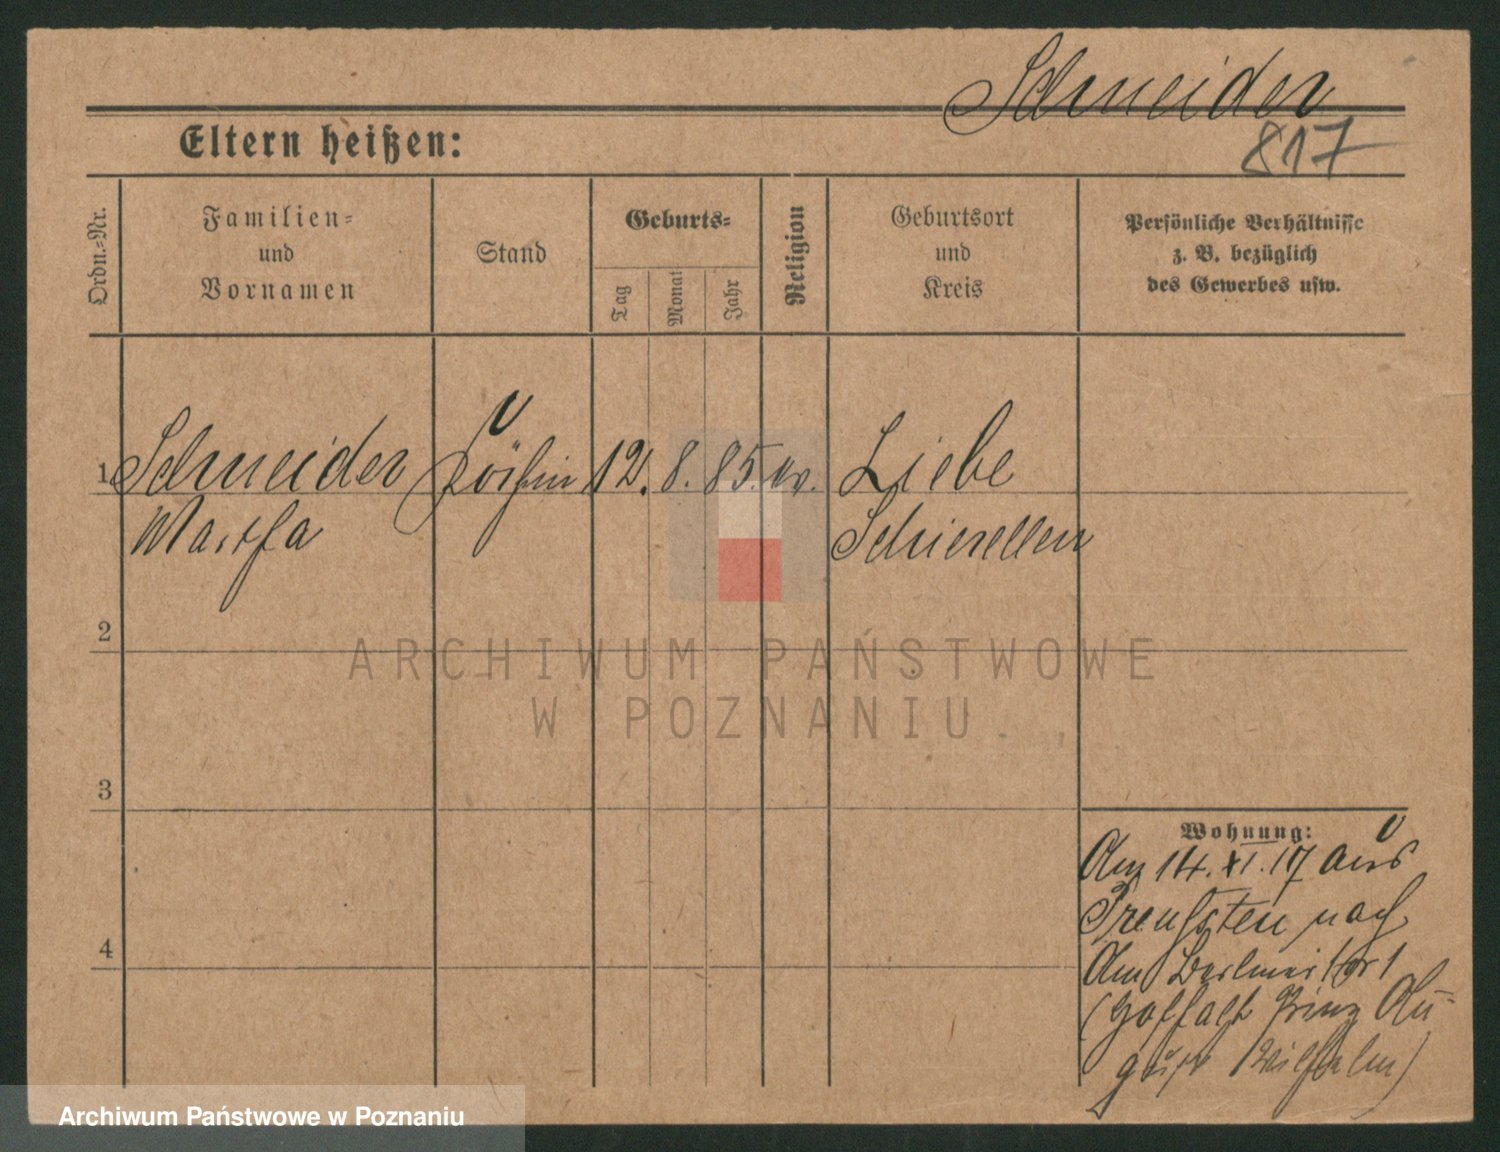 Schneider
817
Eltern heißen:
Ordn.-Nr.
Familien-
und
Vornamen
Stand
Geburts-
Tag
Monat
Jahr
Religion
Geburtsort
und
Kreis
Persönliche Verhältnisse
z. B. bezüglich
des Gewerbes usw.
1 Schneider Köchin 12. 8. 85. ev. Liebe
Martha
2
3
4
Wohnung:
Am 14. XI. 17 aus
nach
Am Berliner Tor 1
(Gasthaus Prinz Au-
gust Wilhelm)
ARCHIWUM PAŃSTWOWE
W POZNANIU
Archiwum Państwowe w Poznaniu